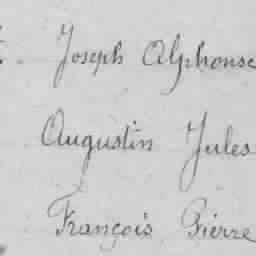 Joseph Alphonse
Augustin Jules
François Pierre